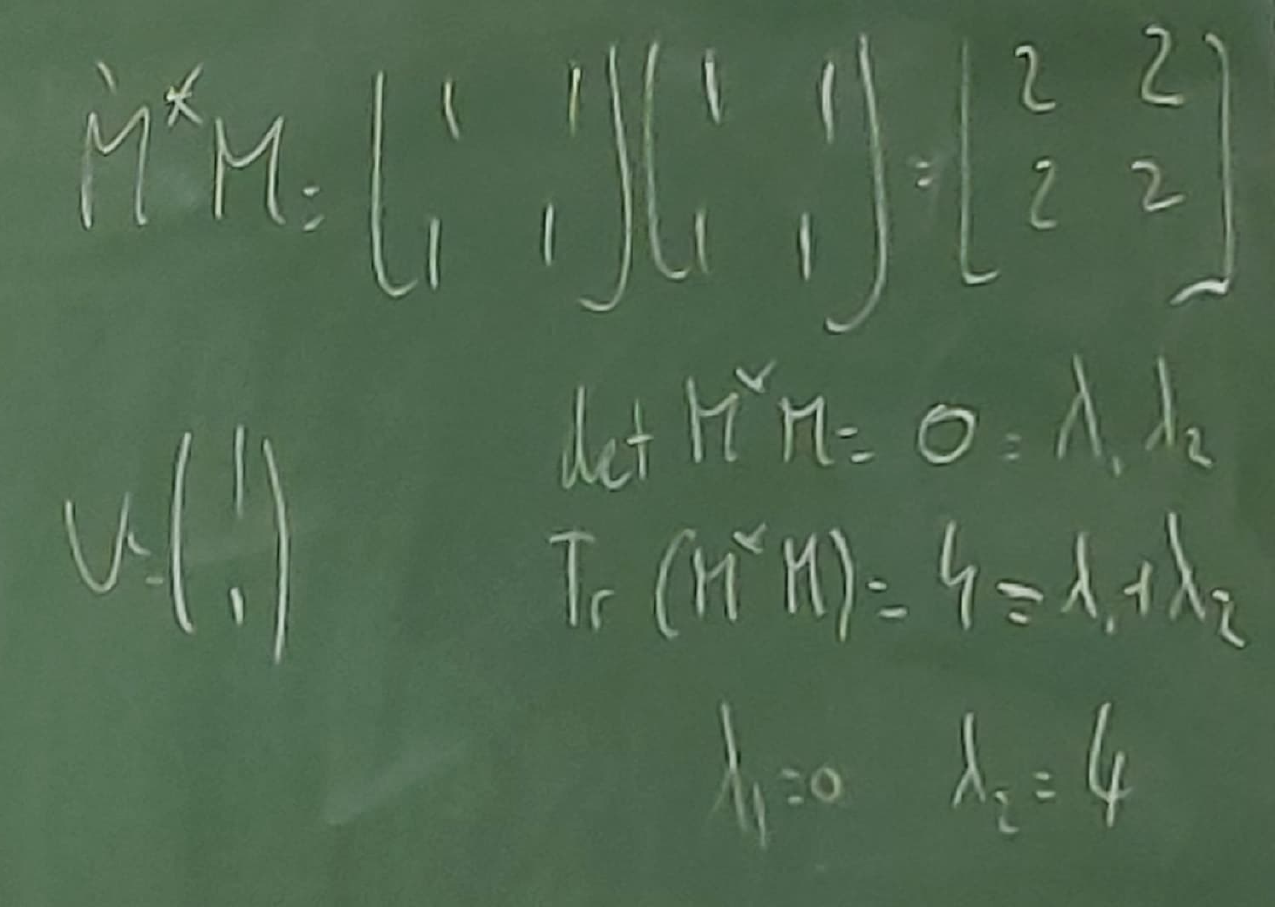 M*M = (1 1 / 1 1)(1 1 / 1 1) = [2 2 / 2 2]
det M*M = 0 = λ₁ λ₂
V = (1 / 1)
Tr (M*M) = 4 = λ₁ + λ₂
λ₁ = 0 λ₂ = 4